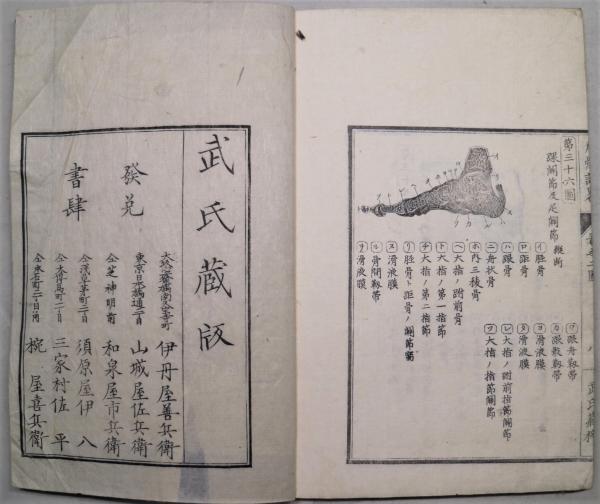 第三十六圖
踝關節及足關節縱断
㋑脛骨
㋺距骨
㋩跟骨
㋥舟状骨
㋭内三稜骨
㋬大指ノ跗前骨
㋣大指ノ第一指節
㋠大指ノ第二指節
㋷脛骨ト距骨ノ關節囊
㋦滑液膜
㋸骨間靱帯
㋾滑液膜
㋵滑液膜
㋟滑液膜
㋹大指ノ跗前指節關節
大指ノ指節關節
跟舟靱帯
武氏藏版
武氏藏版
發兌
書肆
伊丹屋善兵衛
東京日本橋通二丁目
山城屋佐兵衛
仝芝神明前
和泉屋市兵衛
仝浅草茅町二丁目
須原屋伊八
三家村佐平
椀屋喜兵衛